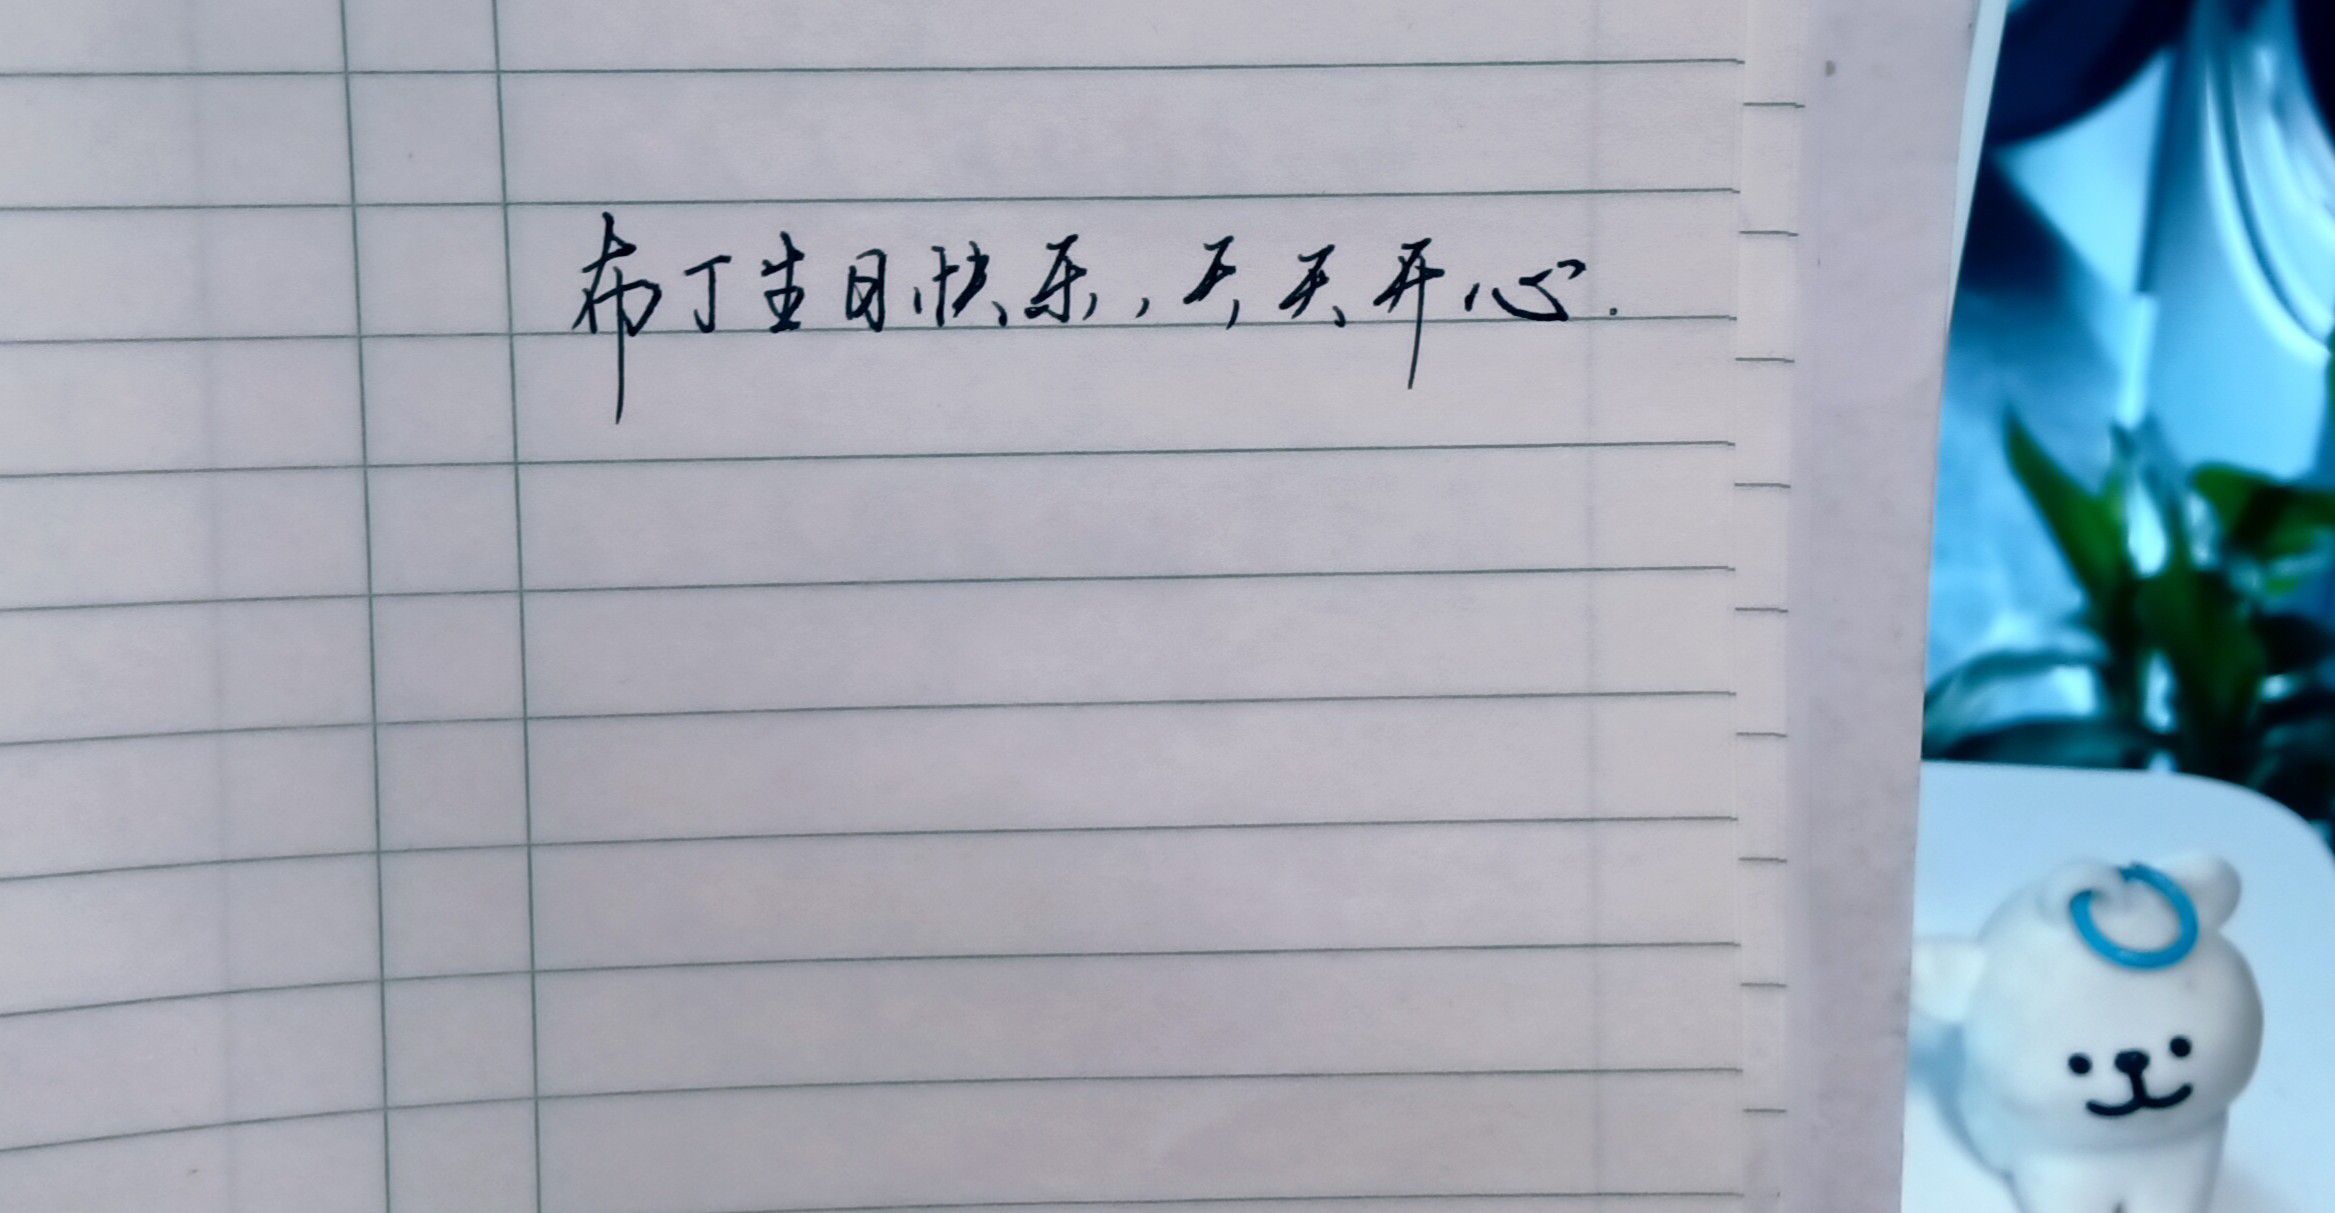 布丁生日快乐,天天开心.